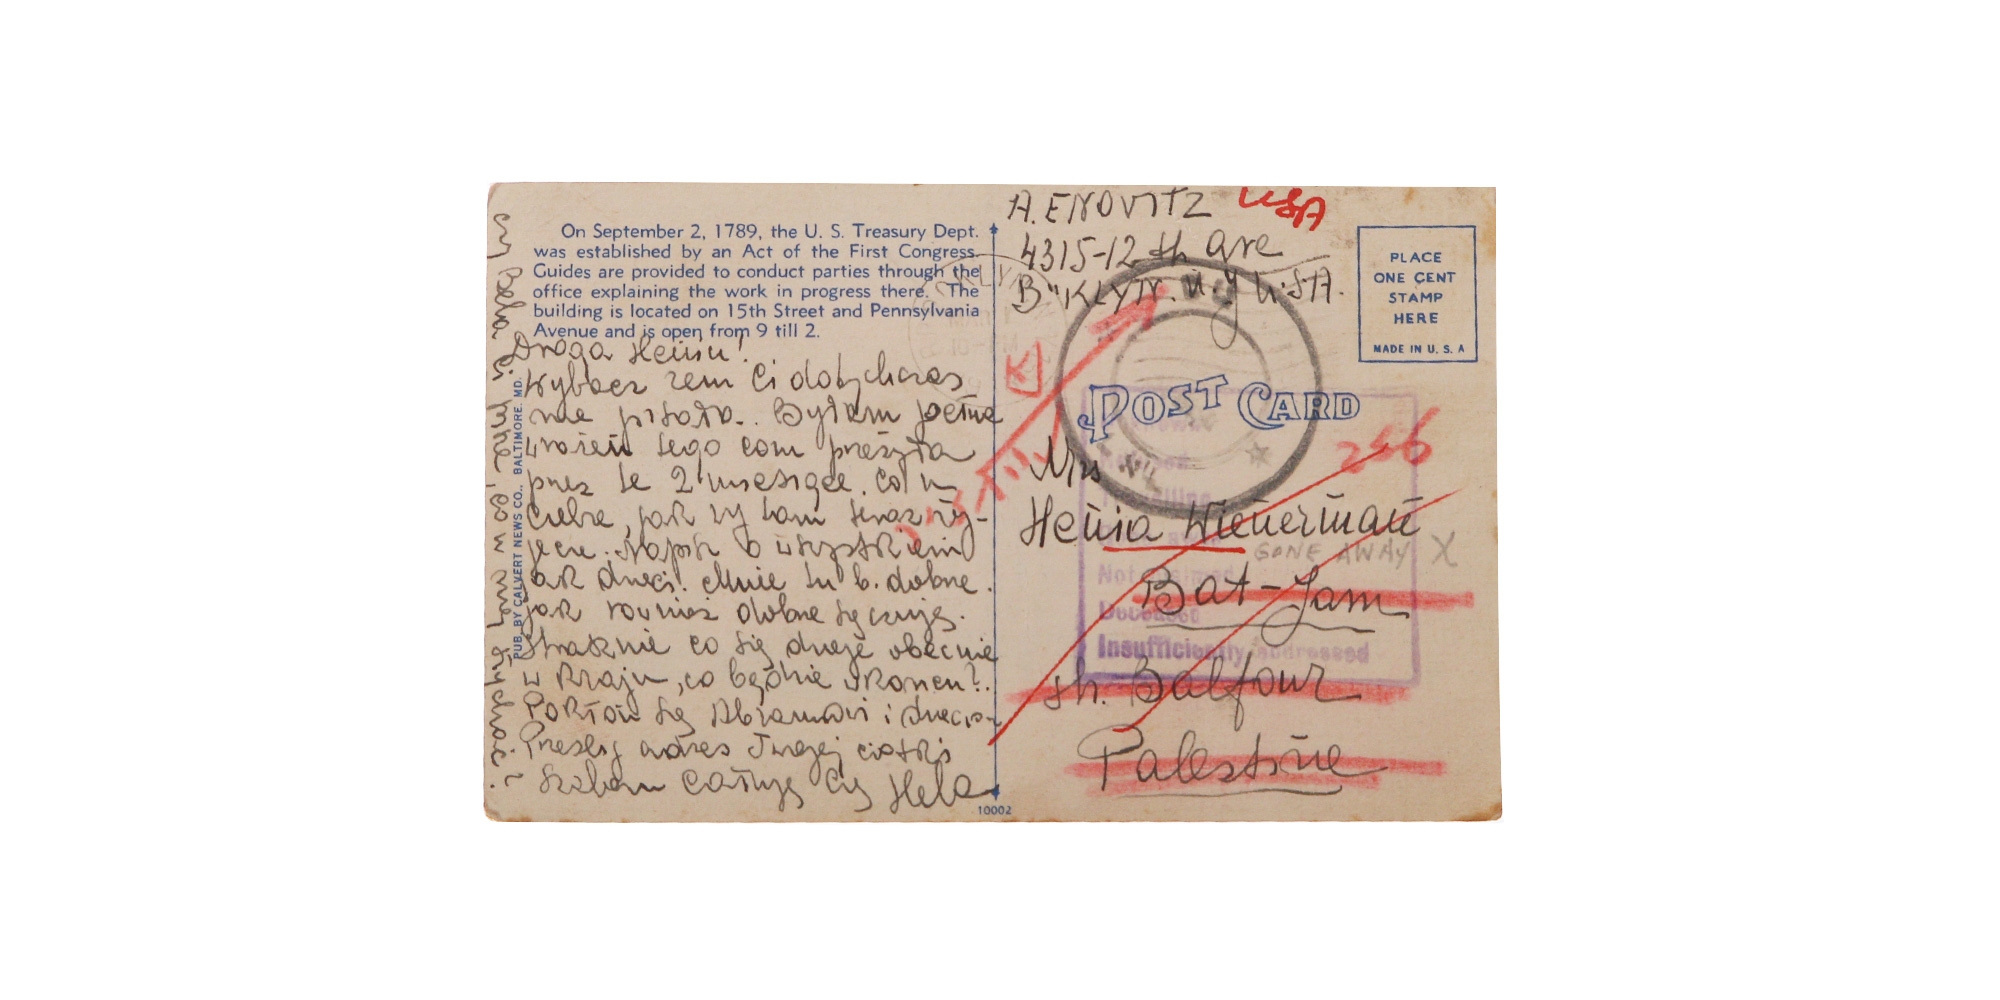 On September 2, 1789, the U. S. Treasury Dept.
was established by an Act of the First Congress.
Guides are provided to conduct parties through the
office explaining the work in progress there. The
building is located on 15th Street and Pennsylvania
Avenue and is open from 9 till 2.
Droga Heniu!
Wybacz żem Ci dotychczas
nie pisała. Byłam pełna
wrażeń tego com przeżyła
przez te 2 miesiące. Co u
Ciebie, jak wy tam teraz ży-
jecie. Napisz o wszystkiem
jak dzieci! Mnie tu b. dobrze.
jak również dobrze się czuję.
Strasznie co się dzieje obecnie
w kraju, co będzie wkońcu?
Pokłoń się Abramowi i dzieciom
Prześlij adres Twojej ciotki
całuję Cię Hela
PUB. BY CALVERT NEWS CO., BALTIMORE, MD.
10002
A. ENOVITZ
USA
4315-12 th ave
B"KLYN. N.Y U.S.A.
PLACE
ONE CENT
STAMP
HERE
MADE IN U. S. A
POST CARD
256
Mrs
Henia Wienerman
GONE AWAY X
Bat-Jam
Deceased
Insufficiently addressed
sh. Balfour
Palestine